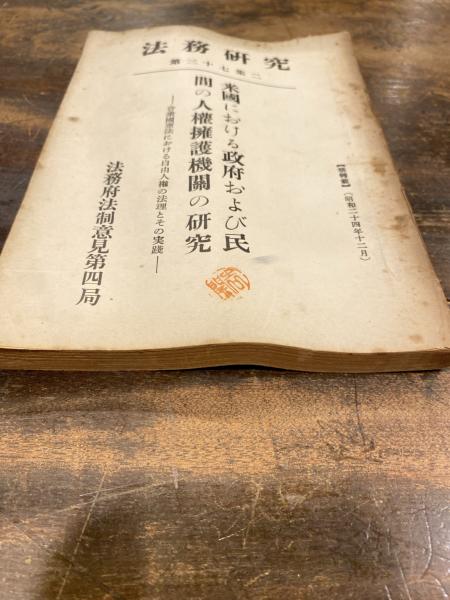 法務研究
第三十七集二
【禁轉載】（昭和二十四年十二月）
米國における政府および民
間の人權擁護機關の研究
――合衆國憲法における自由人權の法理とその実践――
法務府法制意見第四局